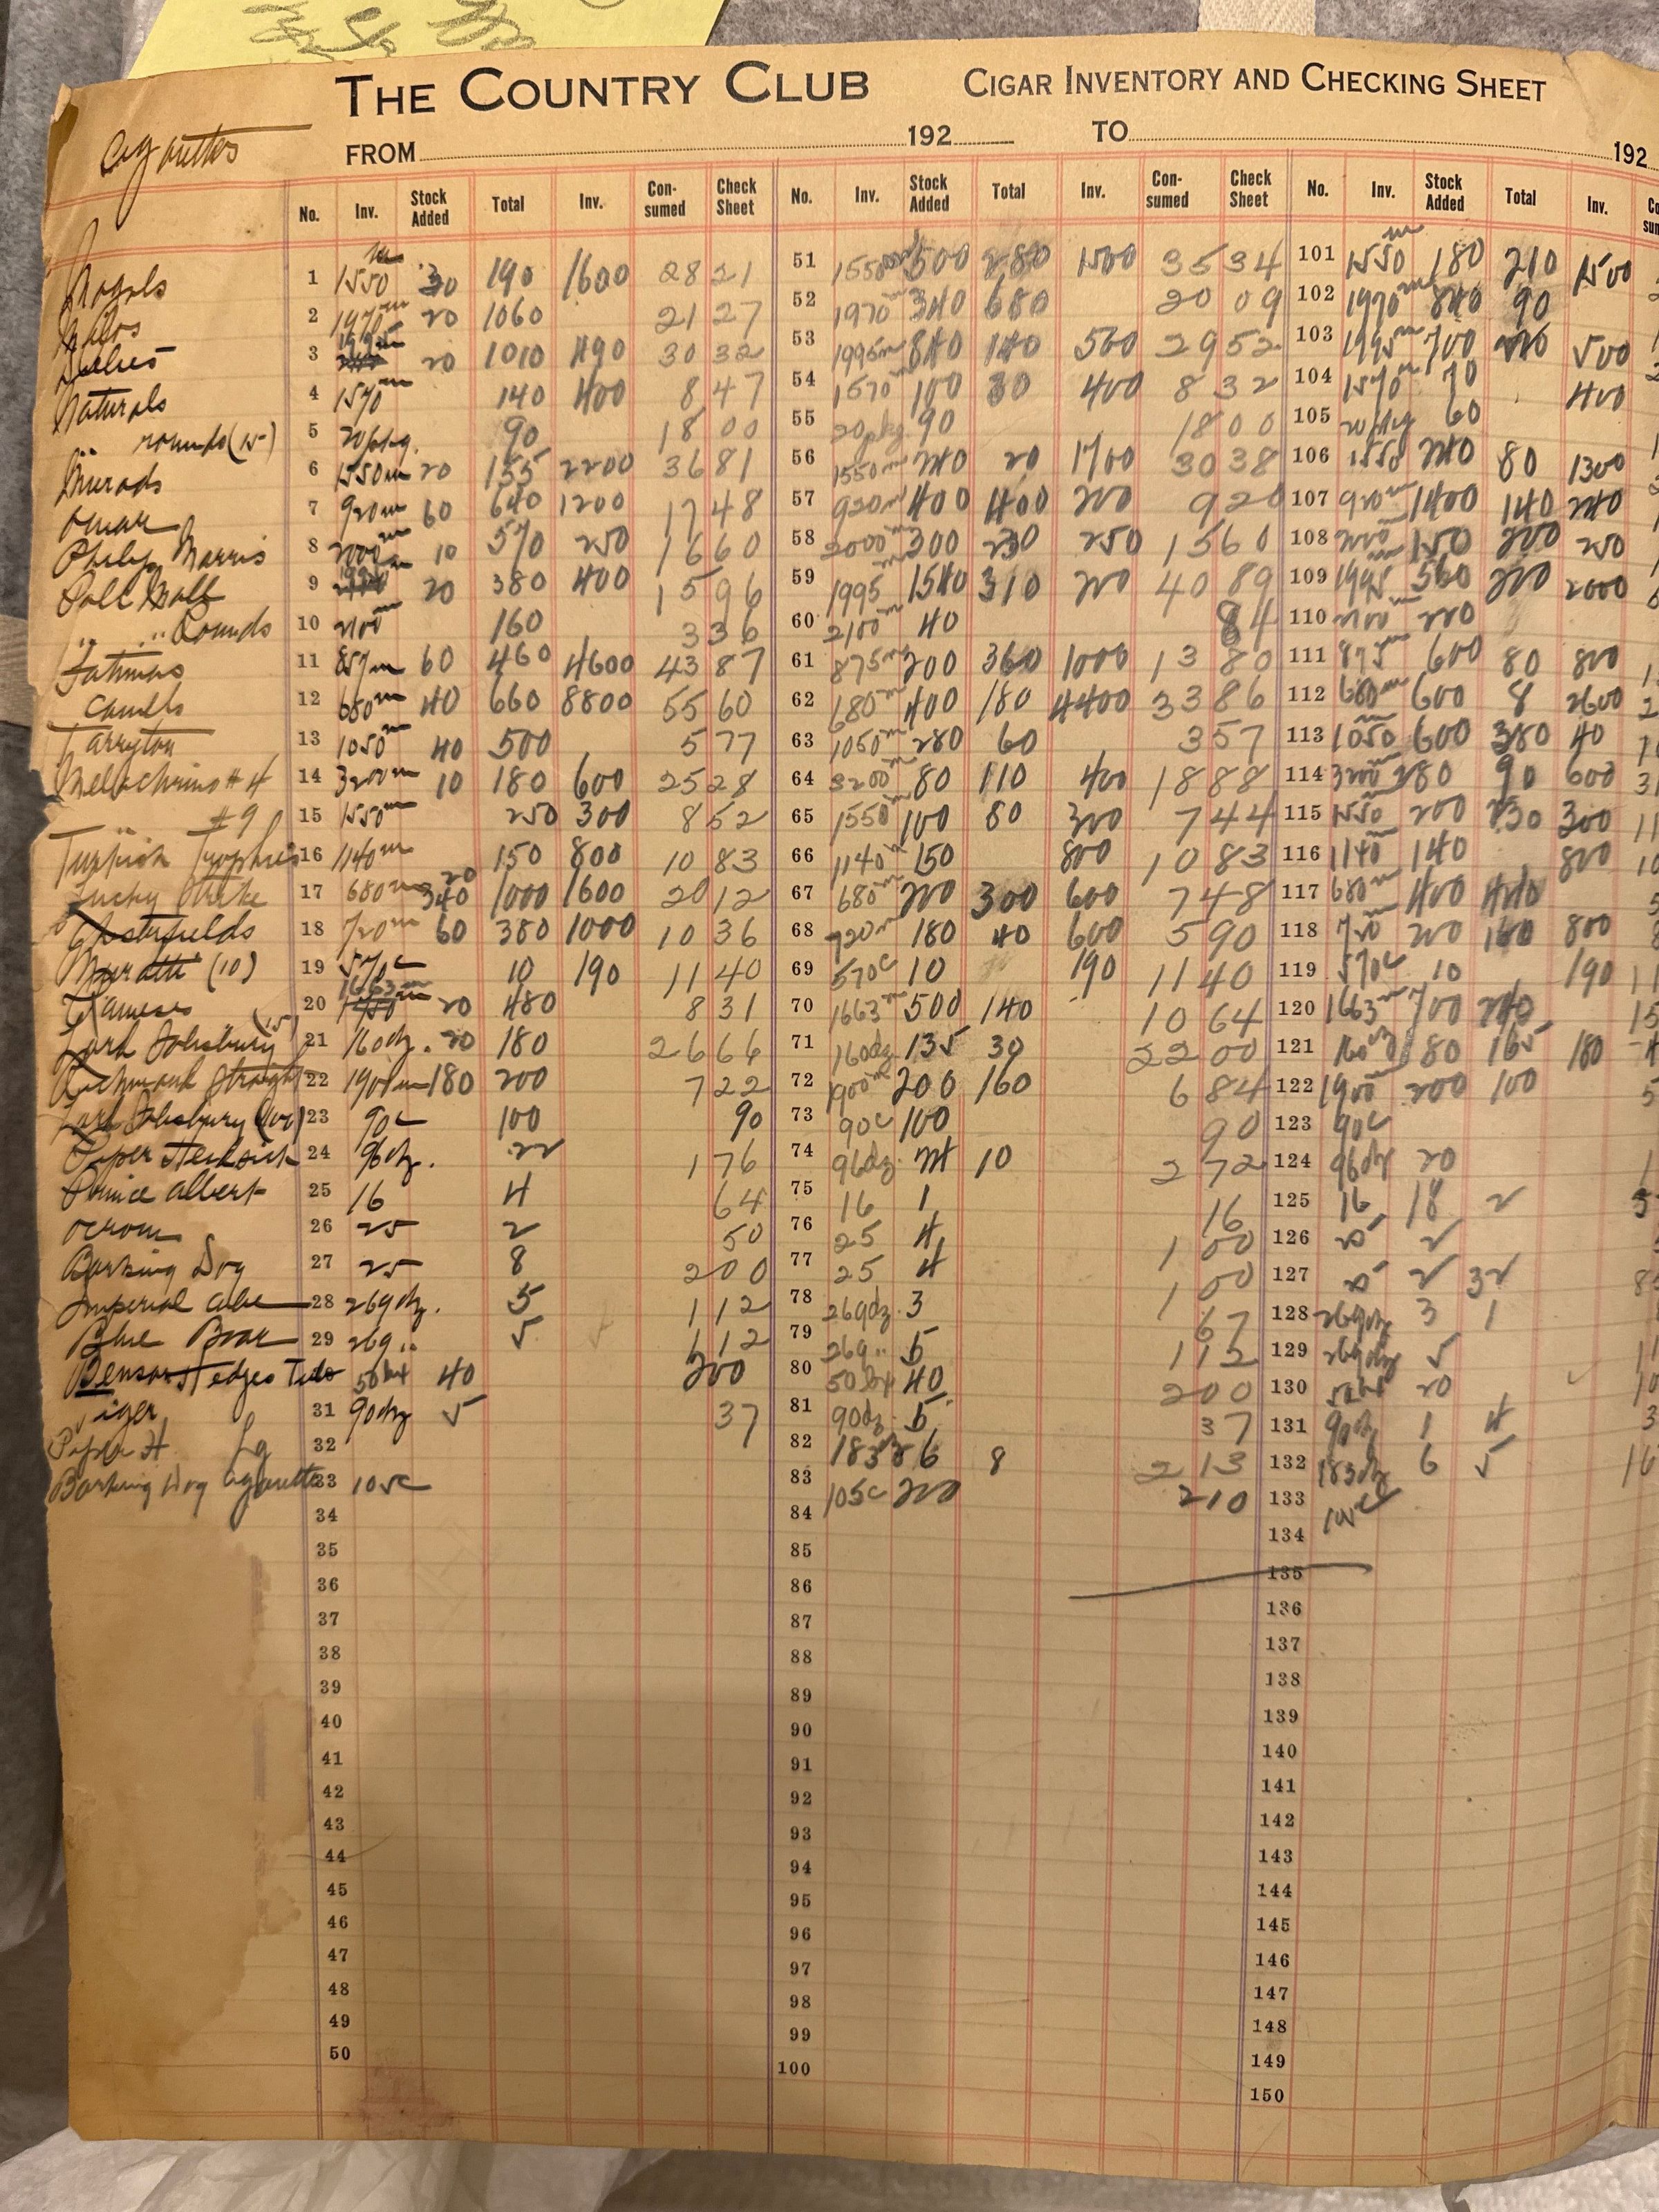 THE COUNTRY CLUB CIGAR INVENTORY AND CHECKING SHEET
Cigarettes FROM 192 TO 192
No. Inv. Stock Added Total Inv. Con-sumed Check Sheet No. Inv. Stock Added Total Inv. Con-sumed Check Sheet No. Inv. Stock Added Total Inv.
1 1550m 30 190 1600 28 21 51 1550m 500 280 1500 35 34 101 1550m 180 210 1500
2 1970m 20 1060 21 27 52 1970m 340 680 20 09 102 1970m 840 90
3 1995m 20 1010 490 30 32 53 1995m 840 140 500 29 52 103 1995m 700 500
Naturals 4 1570m 140 400 8 47 54 1570m 100 30 400 8 32 104 1570m 70 400
" rounds (15) 5 20pkg. 90 18 00 55 20pkg 90 18 00 105 20pkg 60
Murads 6 1550m 20 155 2200 36 81 56 1550m 240 20 1700 30 38 106 1550 240 80 1300
Omar 7 920m 60 640 1200 17 48 57 920m 400 400 200 9 20 107 920m 1400 140 240
Philip Morris 8 2000m 10 570 250 16 60 58 2000m 300 230 250 15 60 108 2000m 150 200 250
Pall Mall 9 20 380 400 15 96 59 1995m 1540 310 200 40 89 109 1995m 560 200 2000
" " Rounds 10 2100m 160 3 36 60 2100m 40 84 110 2100m 200
Fatimas 11 857m 60 460 4600 43 87 61 875m 200 360 1000 13 80 111 875m 600 80 800
Camels 12 680m 40 660 8800 55 60 62 680m 400 180 4400 33 86 112 680m 600 8 2600
Tarryton 13 1050m 40 500 5 77 63 1050m 280 60 3 57 113 1050m 600 380 40
Mellachrino #4 14 3200m 10 180 600 25 28 64 3200m 80 110 400 18 88 114 3200m 280 90 600
" #9 15 1550m 250 300 8 52 65 1550m 100 80 300 7 44 115 1550m 200 230 300
Turkish Trophies 16 1140m 150 800 10 83 66 1140m 150 800 10 83 116 1140m 140 800
Lucky Strike 17 680m 20 340 1000 1600 20 12 67 680m 200 300 600 7 48 117 680m 400 440
Chesterfields 18 720m 60 380 1000 10 36 68 720m 180 40 600 5 90 118 720m 200 140 800
(10) 19 570c 10 190 11 40 69 570c 10 190 11 40 119 570c 10 190
20 1663m 20 480 8 31 70 1663m 500 140 10 64 120 1663m 700 240
Lord Salisbury (15) 21 160dz. 20 180 26 66 71 160dz 135 30 22 00 121 160dz 80 165 180
Richmond Straight 22 1900m 180 200 7 22 72 1900m 200 160 6 84 122 1900m 200 100
Lord Salisbury (100) 23 90c 100 90 73 90c 100 90 123 90c
Piper Heidsick 24 96dz. 22 1 76 74 96dz. 24 10 2 72 124 96dz 20
Prince Albert 25 16 4 64 75 16 1 16 125 16 18 2
26 25 2 50 76 25 4 1 00 126 25 2
Barking Dog 27 25 8 2 00 77 25 4 1 00 127 25 2 32
Imperial Cube 28 269dz. 5 1 12 78 269dz. 3 67 128 269dz 3 1
Blue Boar 29 269 " 5 1 12 79 269 " 5 1 12 129 269dz 5
Benson Hedges 50 40 200 80 50 40 2 00 130 20
Tiger 31 90dz 5 37 81 90dz. 5 37 131 90dz 1 4
Piper H. Lg 32 82 183dz 6 8 2 13 132 183dz 6 5
Barking Dog Cigarette 33 105c 83 105c 200 2 10 133 105c
34 84 134
35 85 135
36 86 136
37 87 137
38 88 138
39 89 139
40 90 140
41 91 141
42 92 142
43 93 143
44 94 144
45 95 145
46 96 146
47 97 147
48 98 148
49 99 149
50 100 150